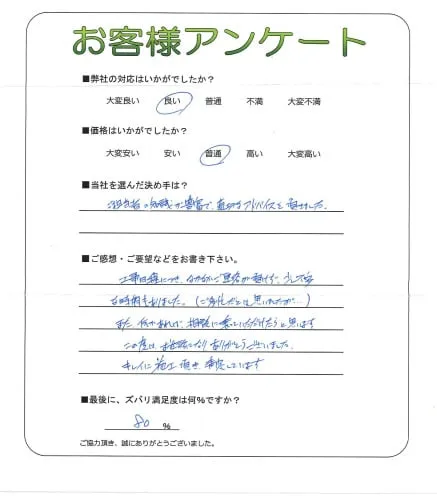 お客様アンケート
■弊社の対応はいかがでしたか?
大変良い 良い 普通 不満 大変不満
■価格はいかがでしたか?
大変安い 安い 普通 高い 大変高い
■当社を選んだ決め手は?
担当者の知識が豊富で、適切なアドバイスを頂けました。
■ご感想・ご要望などをお書き下さい。
工事日程につき、なかなかご連絡が頂けず、少し不安
な時期もありました。(ご多忙だとは思いましたが…)
また 何かあれば、相談に乗っていただけたらと思います
この度は、お世話になり ありがとうございました。
キレイに施工頂き、満足しています
■最後に、ズバリ満足度は何%ですか?
80 %
ご協力頂き、誠にありがとうございました。